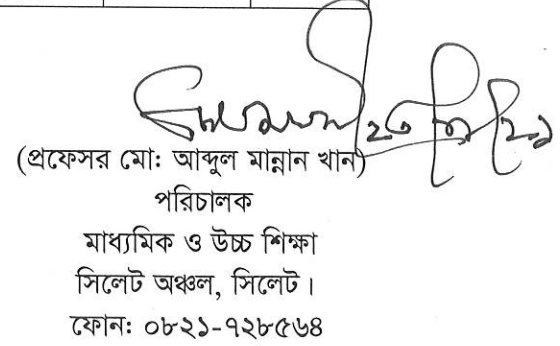 (প্রফেসর মো: আব্দুল মান্নান খান)
পরিচালক
মাধ্যমিক ও উচ্চ শিক্ষা
সিলেট অঞ্চল, সিলেট।
ফোন: ০৮২১-৭২৮৫৬৪